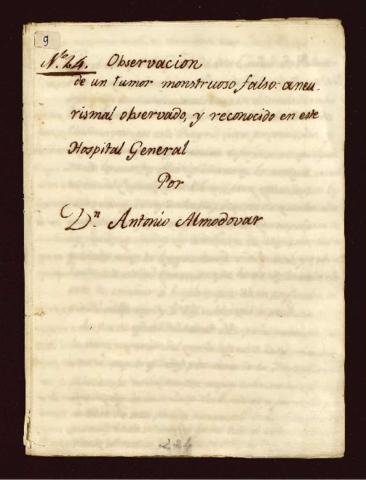 9
N.º 24. Observacion
de un tumor monstruoso, falso-aneu-
rismal observado, y reconocido en este
Hospital General
Por
D.n Antonio Almodovar
224